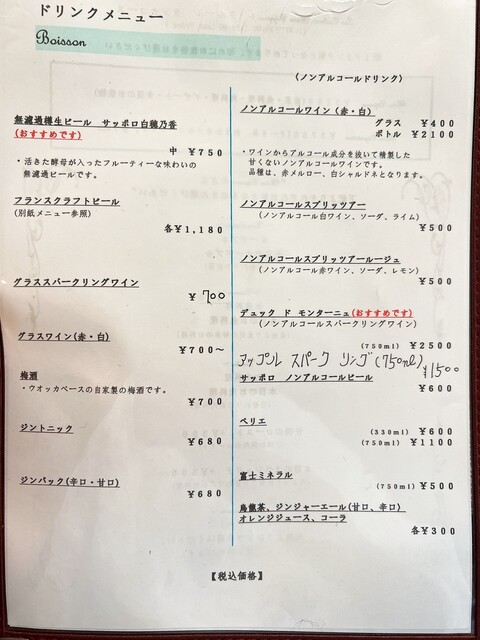 ドリンクメニュー
Boisson
無濾過樽生ビール サッポロ白穂乃香
(おすすめです)
中 ￥750
・活きた酵母が入ったフルーティーな味わいの
無濾過ビールです。
フランスクラフトビール
(別紙メニュー参照)
各￥1,180
グラススパークリングワイン
￥700
グラスワイン(赤・白)
￥700～
梅酒
・ウオッカベースの自家製の梅酒です。
￥700
ジントニック
￥680
ジンバック(辛口・甘口)
￥680
(ノンアルコールドリンク)
ノンアルコールワイン(赤・白)
グラス ￥400
ボトル ￥2100
・ワインからアルコール成分を抜いて精製した
甘くないノンアルコールワインです。
品種は、赤メルロー、白シャルドネとなります。
ノンアルコールスプリッツアー
(ノンアルコール白ワイン、ソーダ、ライム)
￥500
ノンアルコールスプリッツアールージュ
(ノンアルコール赤ワイン、ソーダ、レモン)
￥500
デュック ド モンターニュ(おすすめです)
(ノンアルコールスパークリングワイン)
(750ml) ￥2500
アップル スパークリング(750ml) ￥1500
サッポロ ノンアルコールビール
￥600
ペリエ
(330ml) ￥600
(750ml) ￥1100
富士ミネラル
(750ml) ￥500
烏龍茶、ジンジャーエール(甘口、辛口)
オレンジジュース、コーラ
各￥300
【税込価格】